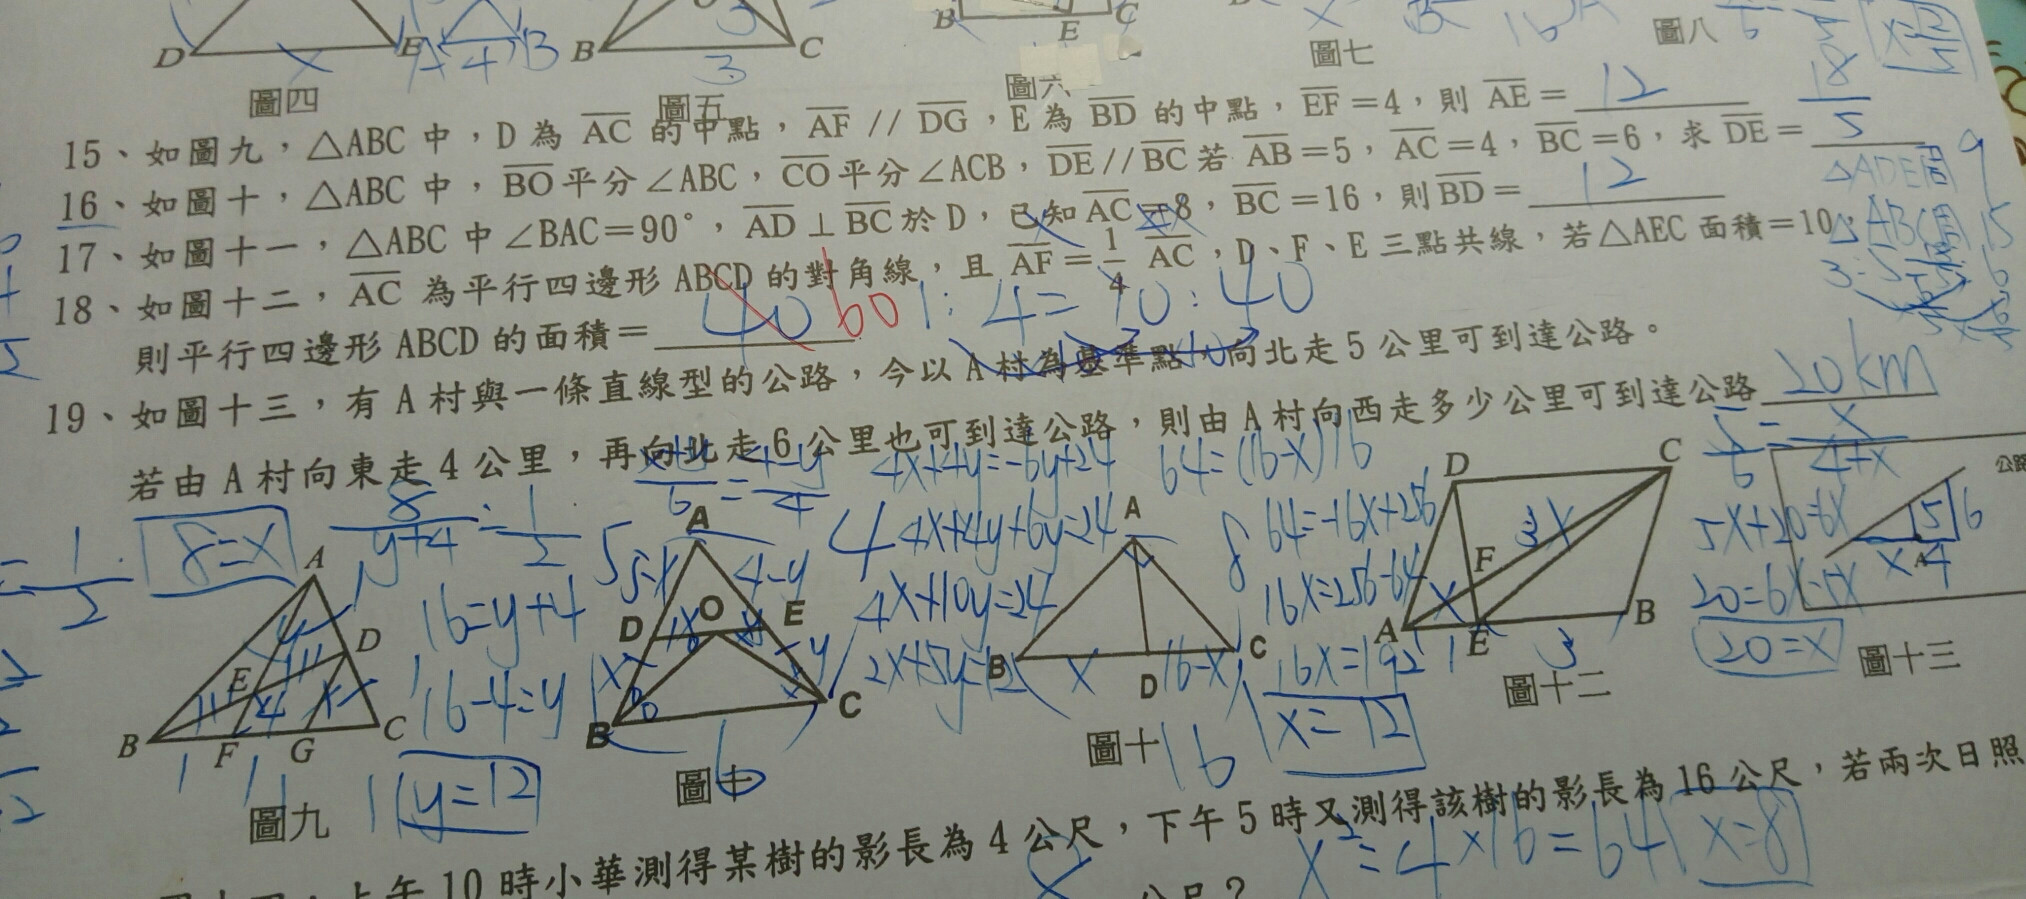 D x E A 4 B B 3 C B E C
圖四 圖五 圖六 圖七 圖八
x=12/5
15、如圖九，△ABC 中，D 為 AC 的中點，AF // DG，E 為 BD 的中點，EF＝4，則 AE＝ 12
16、如圖十，△ABC 中，BO 平分∠ABC，CO 平分∠ACB，DE // BC 若 AB＝5，AC＝4，BC＝6，求 DE＝ 18/5
17、如圖十一，△ABC 中∠BAC＝90°，AD⊥BC 於 D，已知 AC＝8，BC＝16，則 BD＝ 12
18、如圖十二，AC 為平行四邊形 ABCD 的對角線，且 AF＝1/4 AC，D、F、E 三點共線，若△AEC 面積＝10，
則平行四邊形 ABCD 的面積＝ 40 60 1:4=10:40
△ADE周 9
△ABC周 15
19、如圖十三，有 A 村與一條直線型的公路，今以 A 村為基準點，向北走 5 公里可到達公路。
若由 A 村向東走 4 公里，再向北走 6 公里也可到達公路，則由 A 村向西走多少公里可到達公路 20km
8=x
8/(y+4)=1/2
16=y+4
16-4=y
y=12
4x+4y=-6y+24
4x+4y+6y=24
4x+10y=24
2x+5y=12
64=(16-x)16
64=-16x+256
16x=256-64
16x=192
x=12
5/6=x/(4+x)
5x+20=6x
20=6x-5x
20=x
A D E B F G C
圖九
A D O E B C 6
圖十
A B D C x 16-x 8 16
圖十一
D C F A E B x 3x 1 3
圖十二
公路 5 6 x A 4
圖十三
上午 10 時小華測得某樹的影長為 4 公尺，下午 5 時又測得該樹的影長為 16 公尺，若兩次日照
公尺？
x²=4×16=64 x=8